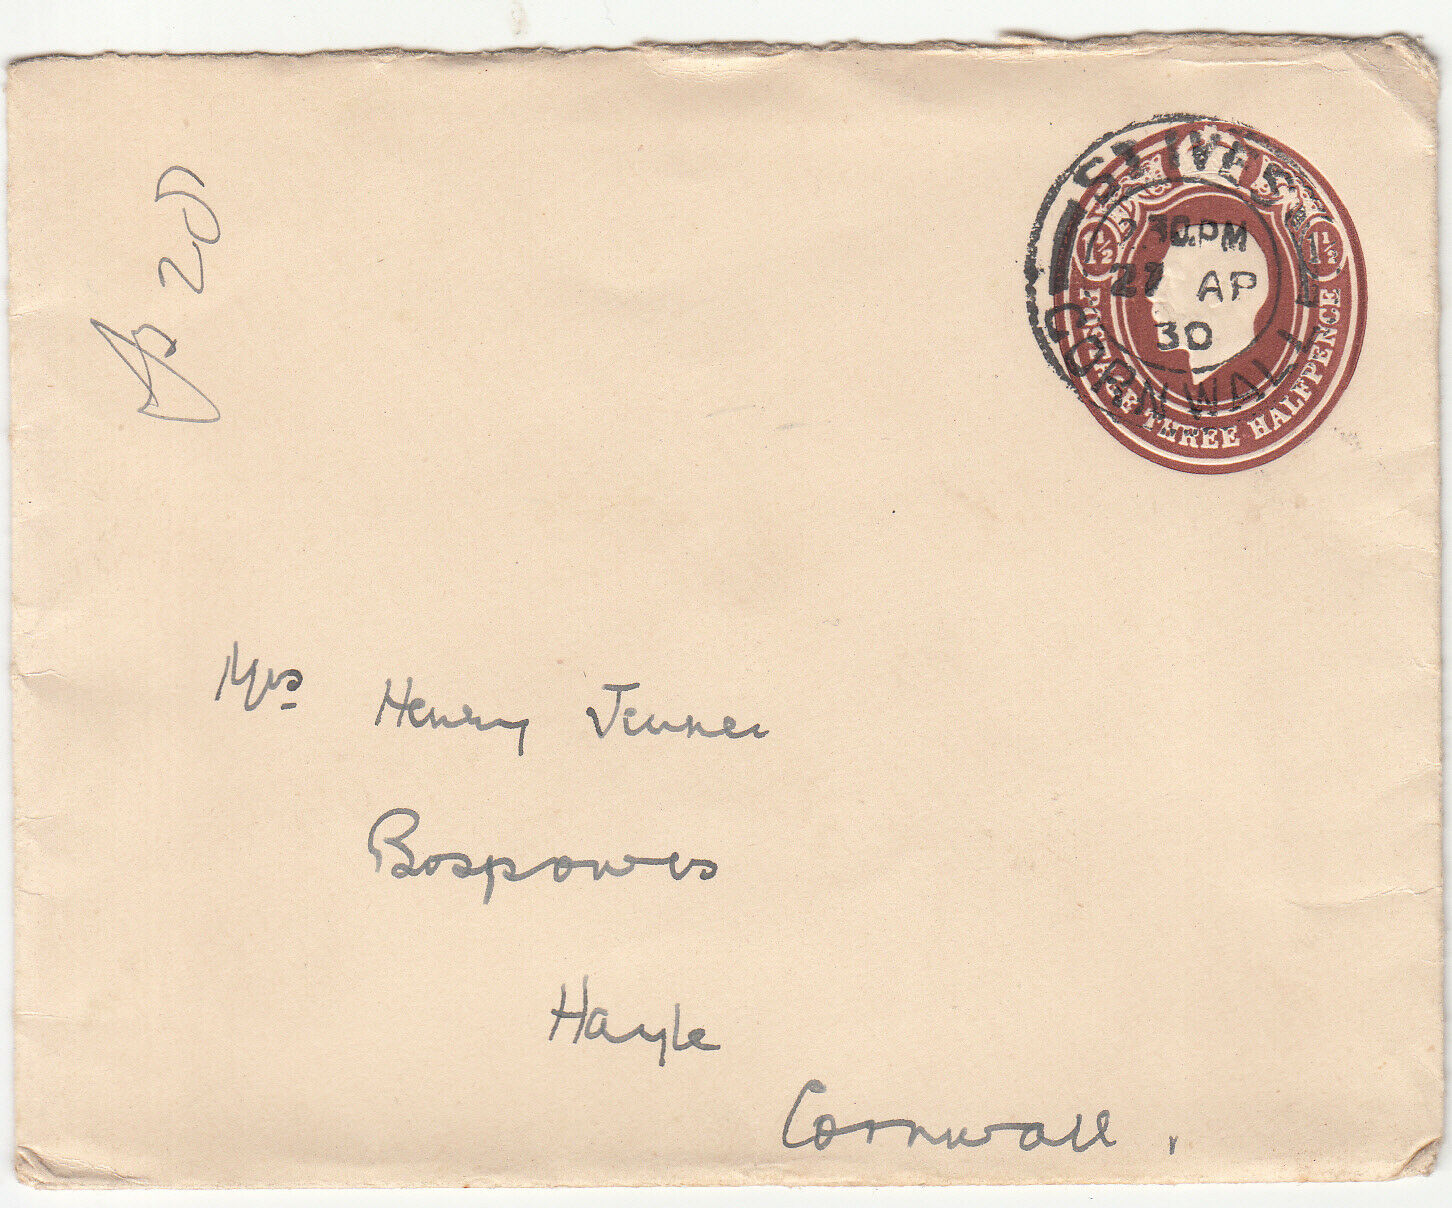 ST IVES
30 PM
27 AP
30
CORNWALL
1½ 1½
POSTAGE THREE HALFPENCE
20
Mrs Henry Jenner
Bospowes
Hayle
Cornwall.